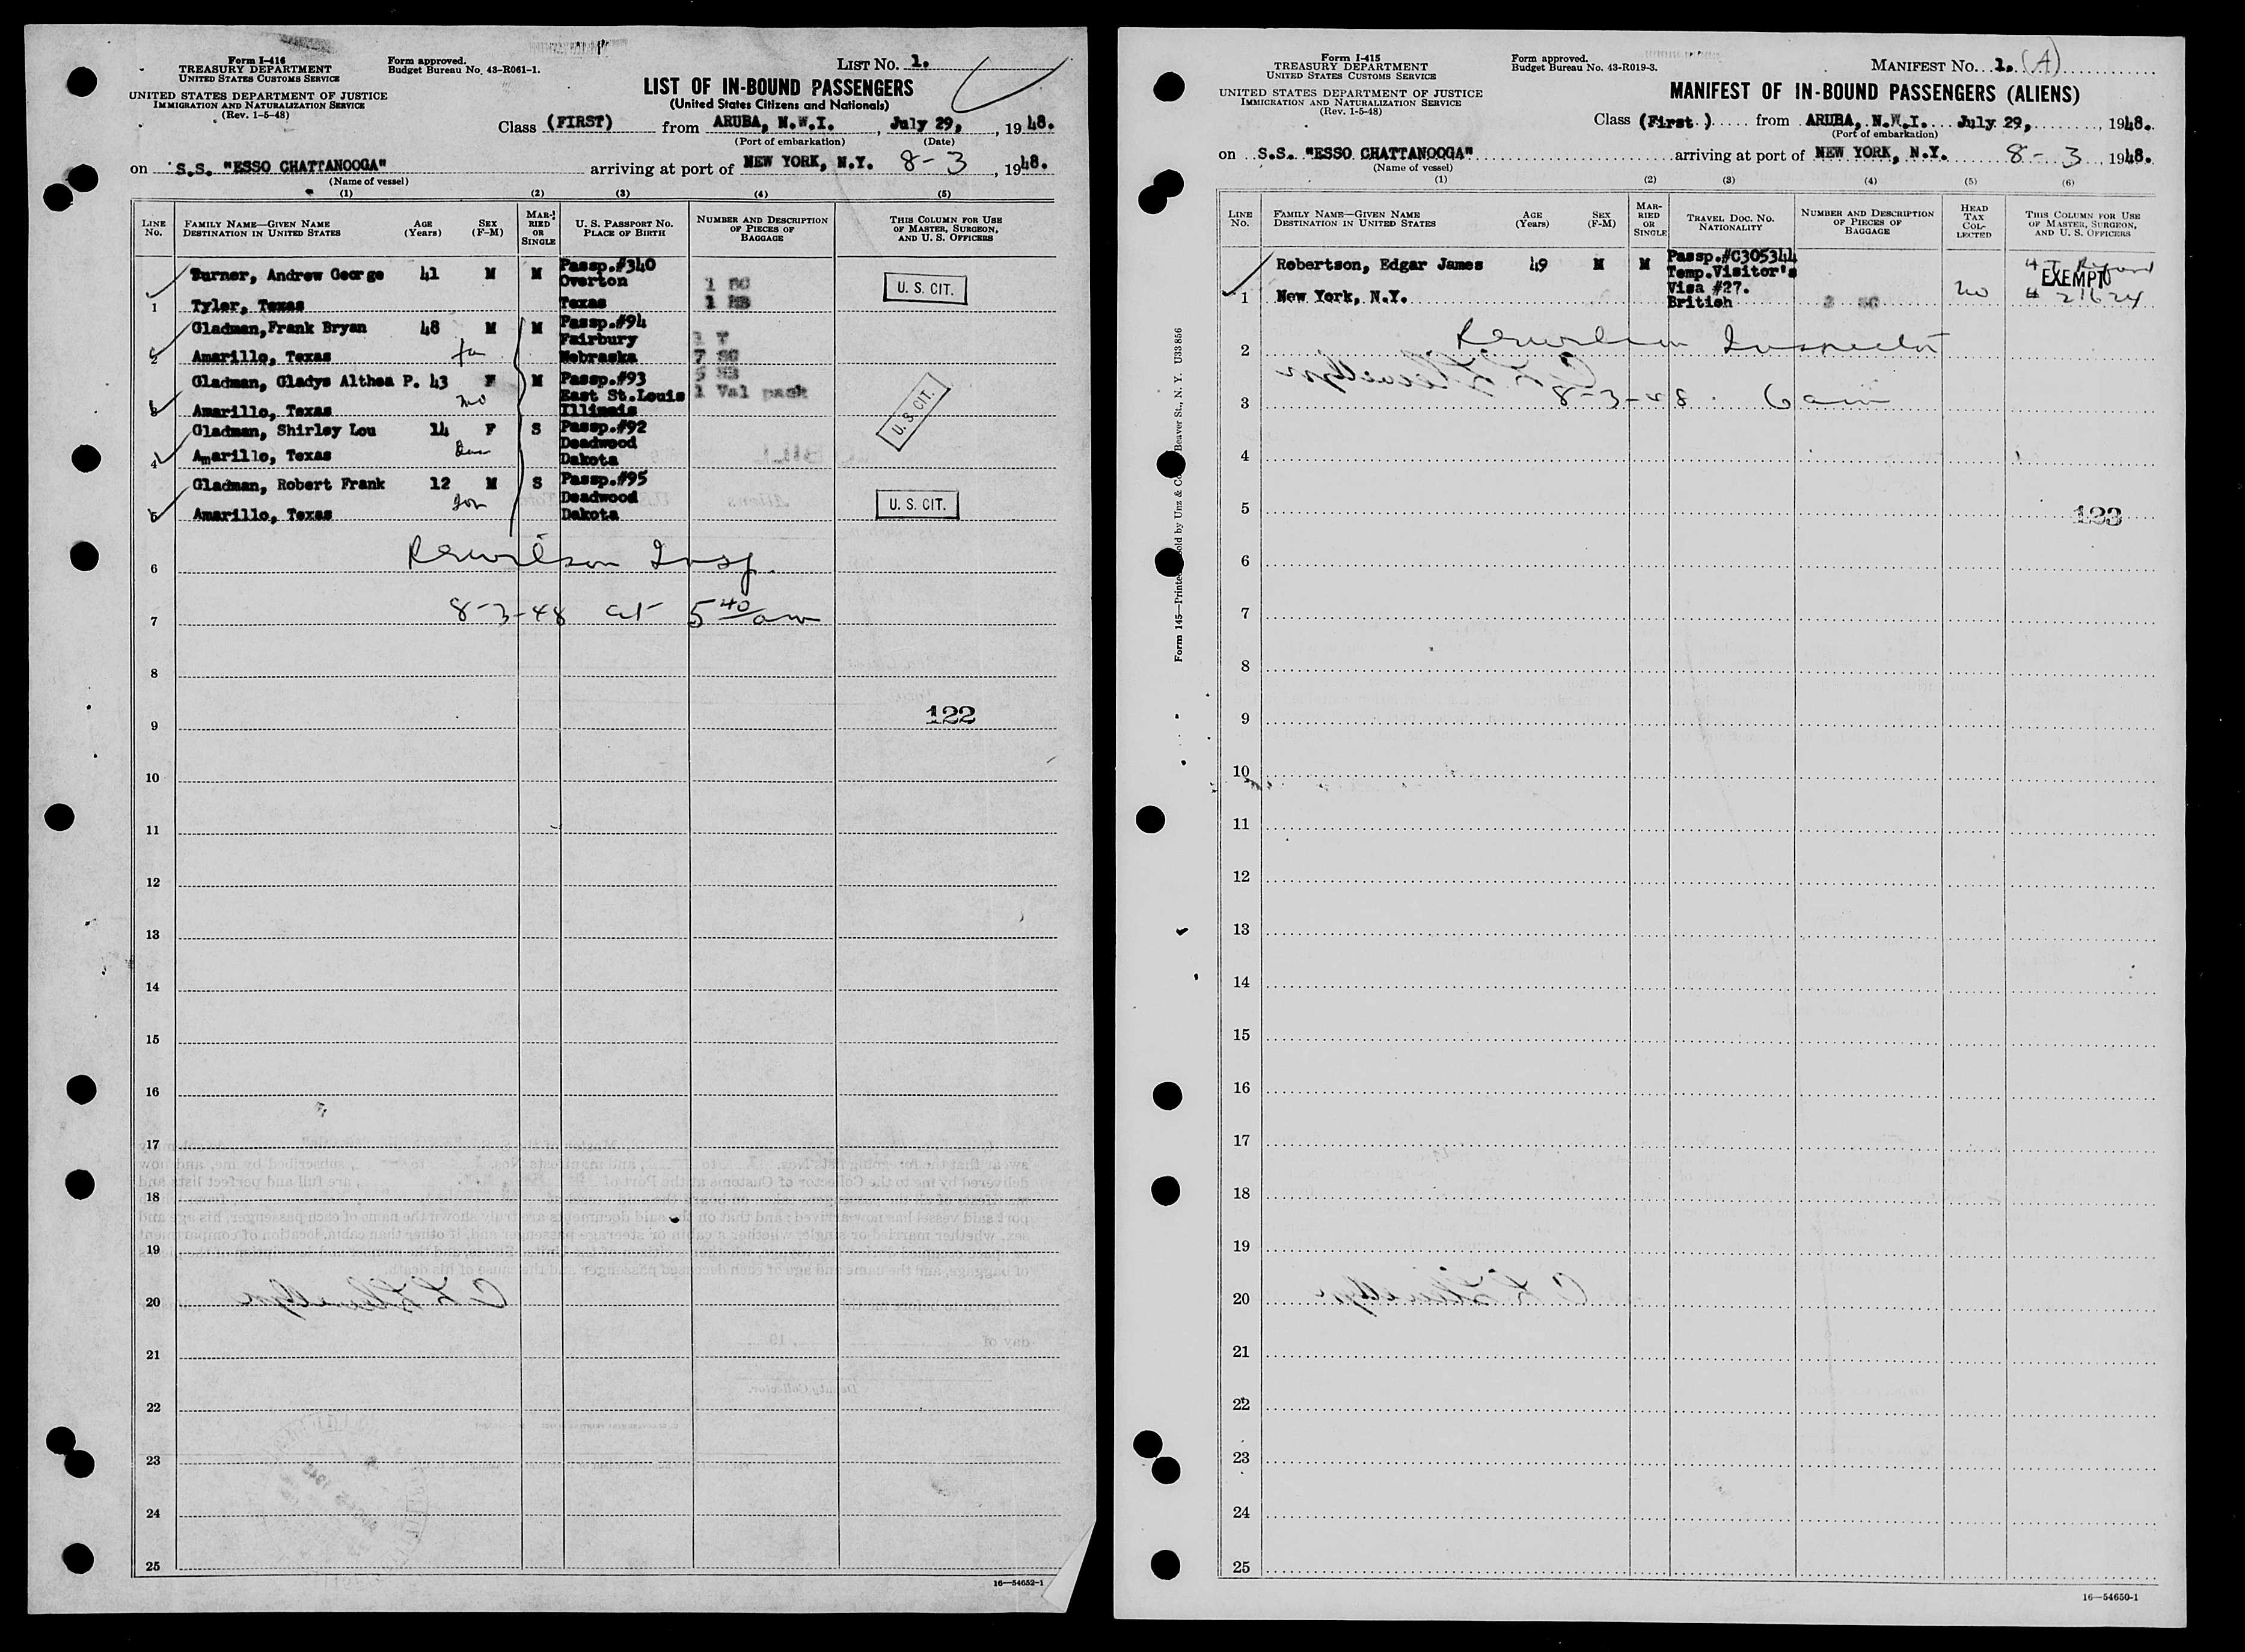 Form I-416
TREASURY DEPARTMENT
UNITED STATES CUSTOMS SERVICE
UNITED STATES DEPARTMENT OF JUSTICE
IMMIGRATION AND NATURALIZATION SERVICE
(Rev. 1-5-48)
Form approved.
Budget Bureau No. 43-R061-1.
LIST NO. 1.
LIST OF IN-BOUND PASSENGERS
(United States Citizens and Nationals)
Class (FIRST) from ARUBA, N.W.I., July 29, 1948.
(Port of embarkation) (Date)
on S.S. "ESSO CHATTANOOGA" arriving at port of NEW YORK, N.Y. 8-3, 1948.
(Name of vessel)
(1) (2) (3) (4) (5)
LINE No.
FAMILY NAME—GIVEN NAME
DESTINATION IN UNITED STATES
AGE (Years)
SEX (F-M)
MARRIED OR SINGLE
U. S. PASSPORT NO.
PLACE OF BIRTH
NUMBER AND DESCRIPTION OF PIECES OF BAGGAGE
THIS COLUMN FOR USE OF MASTER, SURGEON, AND U. S. OFFICERS
Turner, Andrew George 41 M M Passp.#340
Overton
1 Tyler, Texas Texas
U. S. CIT.
Gladman, Frank Bryan 48 M M Passp.#94
Fairbury
2 Amarillo, Texas Nebraska
Gladman, Gladys Althea P. 43 F M Passp.#93
East St.Louis 1 Val pack
3 Amarillo, Texas Illinois
U. S. CIT.
Gladman, Shirley Lou 14 F S Passp.#92
Deadwood
4 Amarillo, Texas Dakota
Gladman, Robert Frank 12 M S Passp.#95
Deadwood
5 Amarillo, Texas Dakota
son
U. S. CIT.
6
8-3-48 at 5 40 am
7
8
122
9
10
11
12
13
14
15
16
17
18
19
20
21
22
23
24
25
16—54652-1
Form I-415
TREASURY DEPARTMENT
UNITED STATES CUSTOMS SERVICE
UNITED STATES DEPARTMENT OF JUSTICE
IMMIGRATION AND NATURALIZATION SERVICE
(Rev. 1-5-48)
Form approved.
Budget Bureau No. 43-R019-3.
MANIFEST NO. 1. (A)
MANIFEST OF IN-BOUND PASSENGERS (ALIENS)
Class (First) from ARUBA, N.W.I. July 29, 1948.
(Port of embarkation)
on S.S. "ESSO CHATTANOOGA" arriving at port of NEW YORK, N.Y. 8-3 1948.
(Name of vessel)
(1) (2) (3) (4) (5) (6)
LINE No.
FAMILY NAME—GIVEN NAME
DESTINATION IN UNITED STATES
AGE (Years)
SEX (F-M)
MARRIED OR SINGLE
TRAVEL DOC. NO.
NATIONALITY
NUMBER AND DESCRIPTION OF PIECES OF BAGGAGE
HEAD TAX COLLECTED
THIS COLUMN FOR USE OF MASTER, SURGEON, AND U. S. OFFICERS
Robertson, Edgar James 49 M M Passp.#C305344
Temp.Visitor's
Visa #27.
1 New York, N.Y. British no
EXEMPT
Inspector
2
8-3-48 6 am
3
4
5
123
6
7
8
9
10
11
12
13
14
15
16
17
18
19
20
21
22
23
24
25
16—54650-1